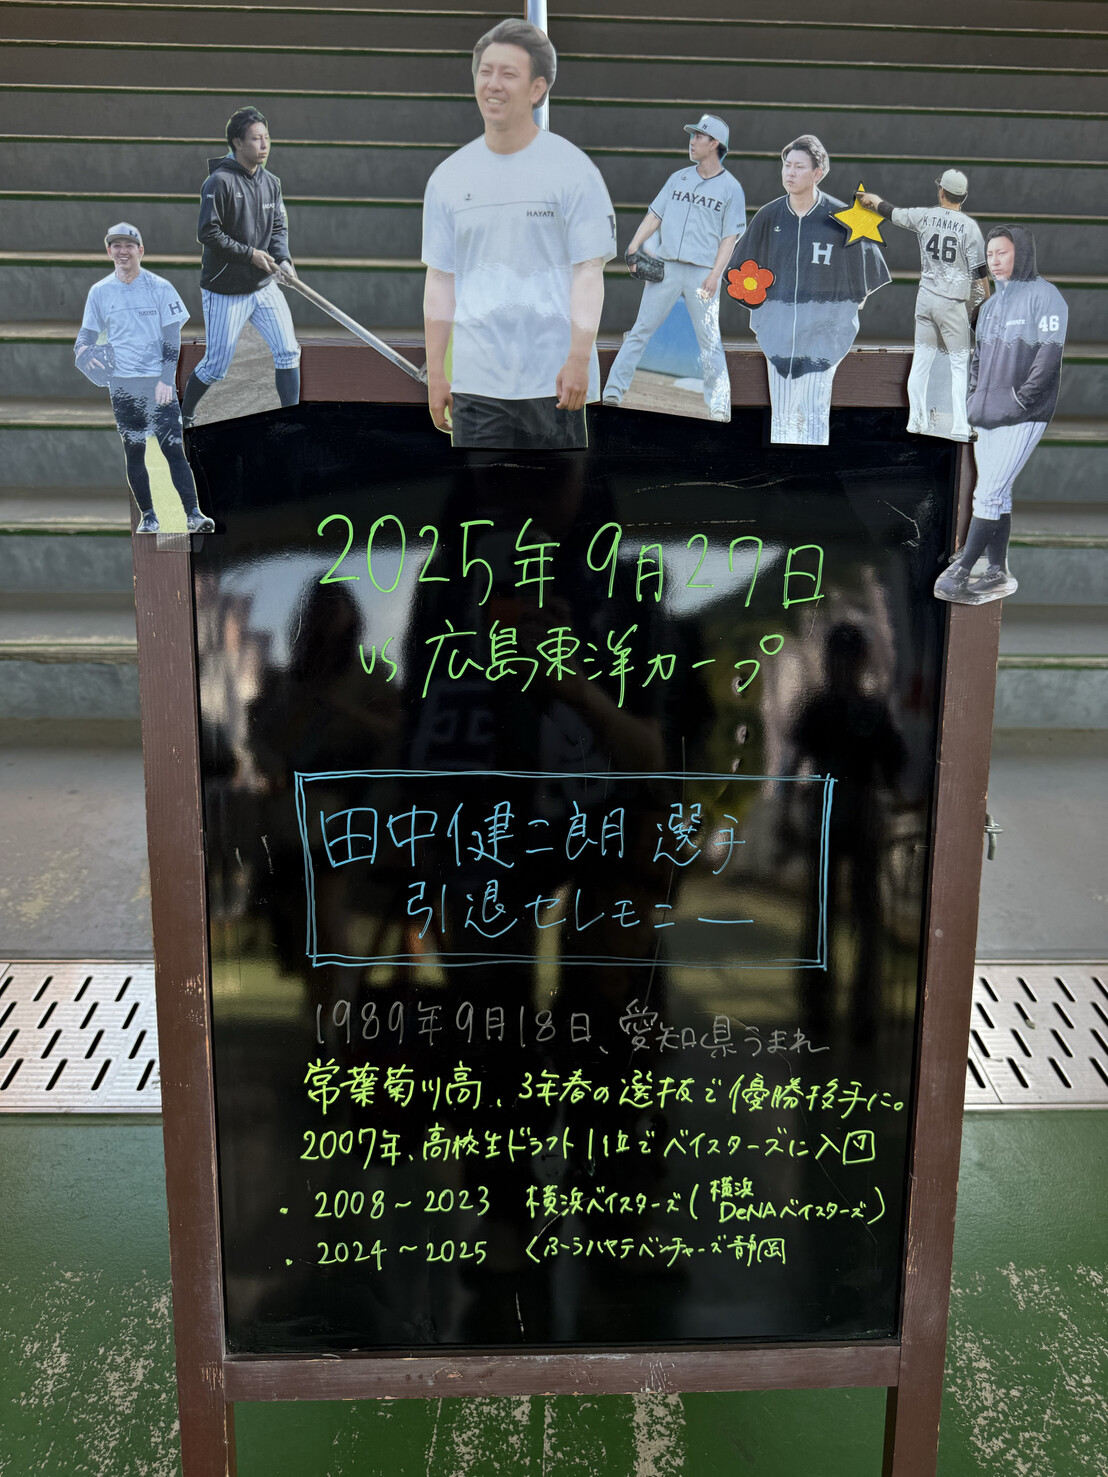 HAYATE
HAYATE
HAYATE
H
HAYATE
H
H
K.TANAKA
46
HAYATE
46
2025年9月27日
vs 広島東洋カープ
田中健二朗 選手
引退セレモニー
1989年9月18日、愛知県うまれ
常葉菊川高、3年春の選抜で優勝投手に。
2007年、高校生ドラフト1位でベイスターズに入団
・2008～2023 横浜ベイスターズ(横浜DeNAベイスターズ)
・2024～2025 くふうハヤテベンチャーズ静岡